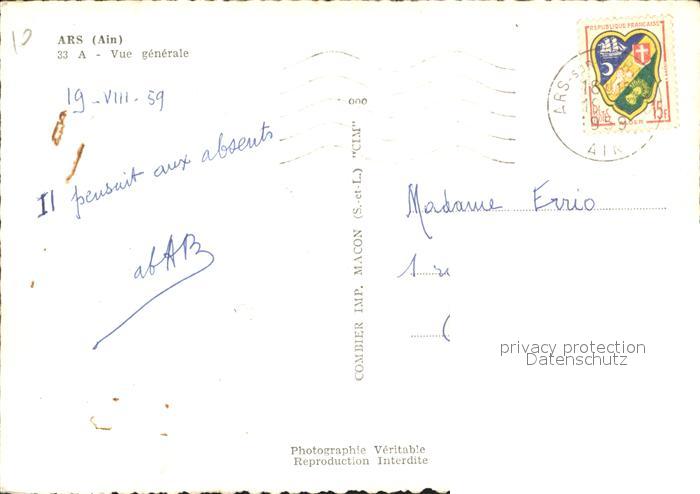 ARS (Ain)
33 A - Vue générale
19-VIII-59
Il pensait aux absents
abAB
COMBIER IMP. MACON (S.-et-L.) "CIM"
REPUBLIQUE FRANCAISE
15F
ARS-SUR
1959
AIN
Madame Errio
privacy protection
Datenschutz
Photographie Véritable
Reproduction Interdite